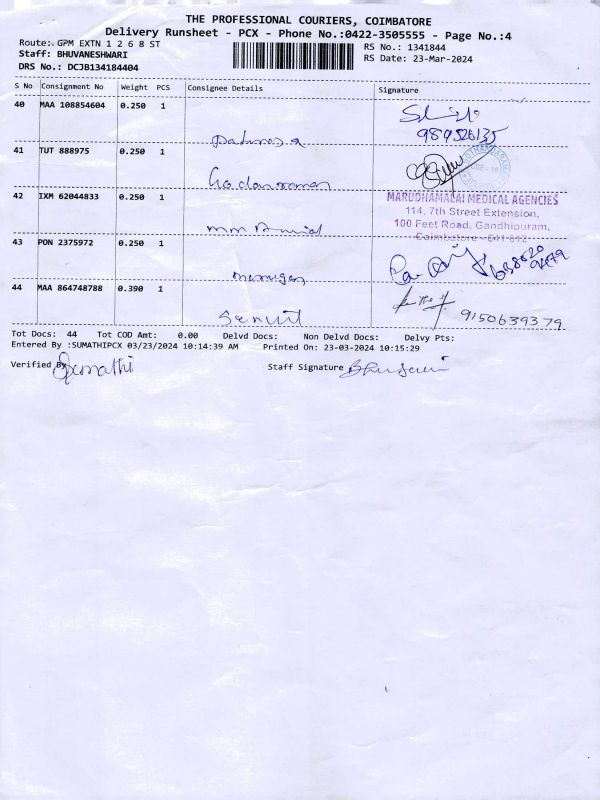 THE PROFESSIONAL COURIERS, COIMBATORE
Delivery Runsheet - PCX - Phone No.:0422-3505555 - Page No.:4
Route: GPM EXTN 1 2 6 8 ST
RS No.: 1341844
Staff: BHUVANESHWARI
RS Date: 23-Mar-2024
DRS No.: DCJB134184404
S No Consignment No Weight PCS Consignee Details Signature
40 MAA 108854604 0.250 1
41 TUT 888975 0.250 1
42 IXM 62044833 0.250 1
MARUDHAMALAI MEDICAL AGENCIES
114, 7th Street Extension,
100 Feet Road, Gandhipuram,
Coimbatore - 641 012
43 PON 2375972 0.250 1
murugan
44 MAA 864748788 0.390 1
9150639379
Tot Docs: 44 Tot COD Amt: 0.00 Delvd Docs: Non Delvd Docs: Delvy Pts:
Entered By :SUMATHIPCX 03/23/2024 10:14:39 AM Printed On: 23-03-2024 10:15:29
Verified By Sumathi Staff Signature